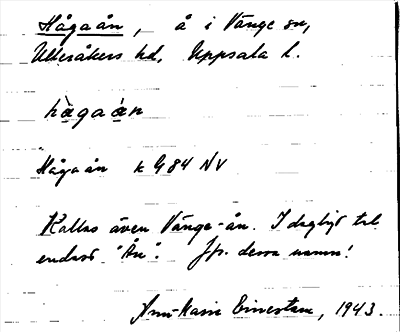 Hågaån, å i Vänge sn,
Ulleråkers hd, Uppsala l.
hågaán
Hågaån k G84 NV
Kallas även Vänge-ån. I dagligt tal
endast "Ån". Jfr. dessa namn!
Ann-Marie, 1943.